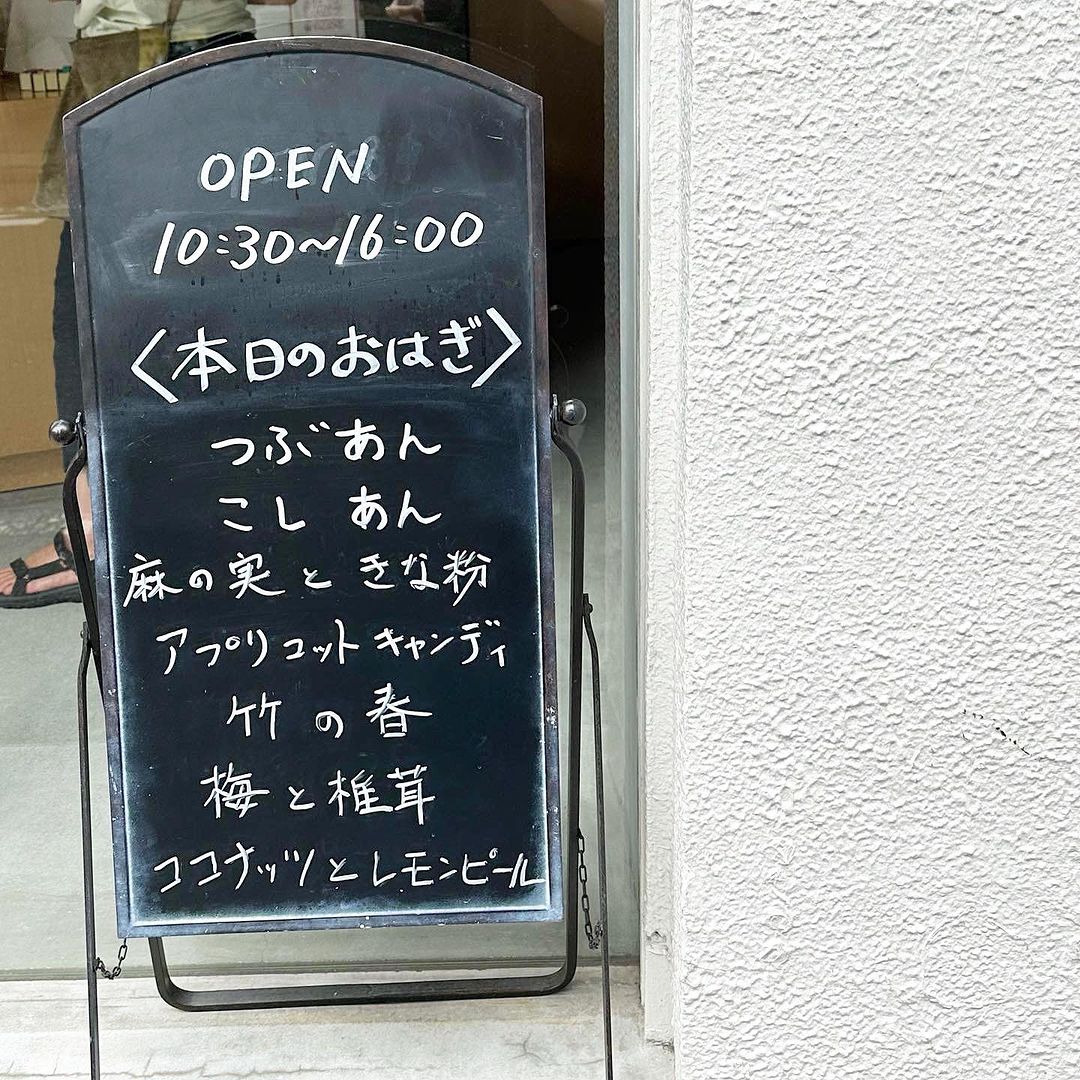 OPEN
10:30~16:00
〈本日のおはぎ〉
つぶあん
こしあん
麻の実ときな粉
アプリコットキャンディ
竹の春
梅と椎茸
ココナッツとレモンピール